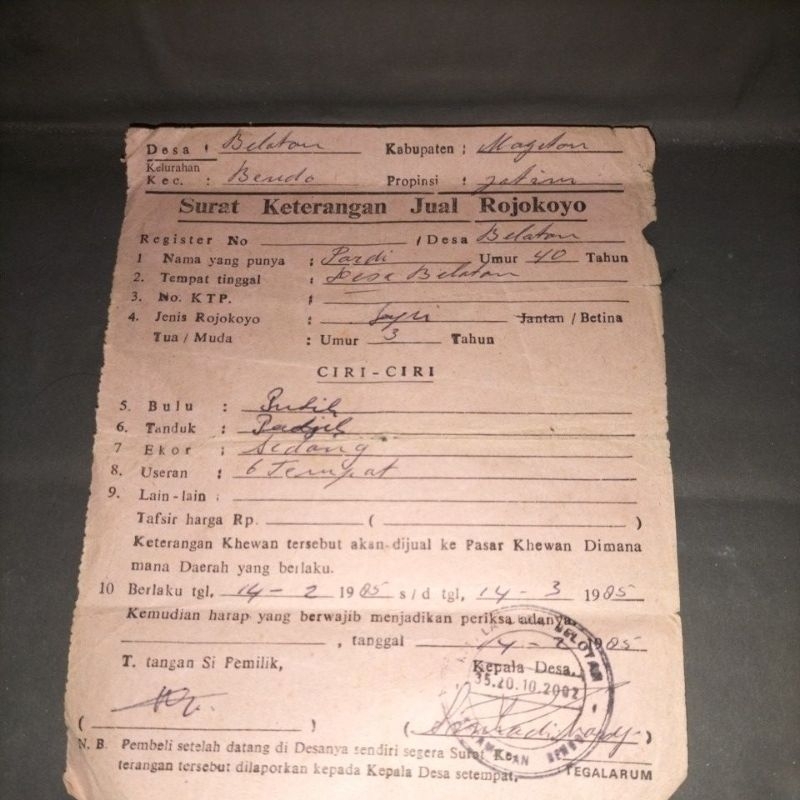 Desa : Belotan Kabupaten : Magetan
Kelurahan
Kec. : Bendo Propinsi : Jatim
Surat Keterangan Jual Rojokoyo
Register No / Desa Belotan
1 Nama yang punya : Pardi Umur 40 Tahun
2. Tempat tinggal : Desa Belotan
3. No. KTP. :
4. Jenis Rojokoyo : Sapi Jantan / Betina
Tua / Muda : Umur 3 Tahun
CIRI - CIRI
5. Bulu : Putih
6. Tanduk :
7 Ekor : Sedang
8. Useran : 6 Tempat
9. Lain - lain :
Tafsir harga Rp. ( )
Keterangan Khewan tersebut akan dijual ke Pasar Khewan Dimana
mana Daerah yang berlaku.
10 Berlaku tgl, 14 - 2 1985 s/d tgl, 14 - 3 1985
Kemudian harap yang berwajib menjadikan periksa adanya.
, tanggal 14 - 2 1985
T. tangan Si Pemilik, Kepala Desa.
35.20.10.2002
BELOTAN
KECAMATAN BENDO
( ) ( )
N. B. Pembeli setelah datang di Desanya sendiri segera Surat Ke-
terangan tersebut dilaporkan kepada Kepala Desa setempat. TEGALARUM